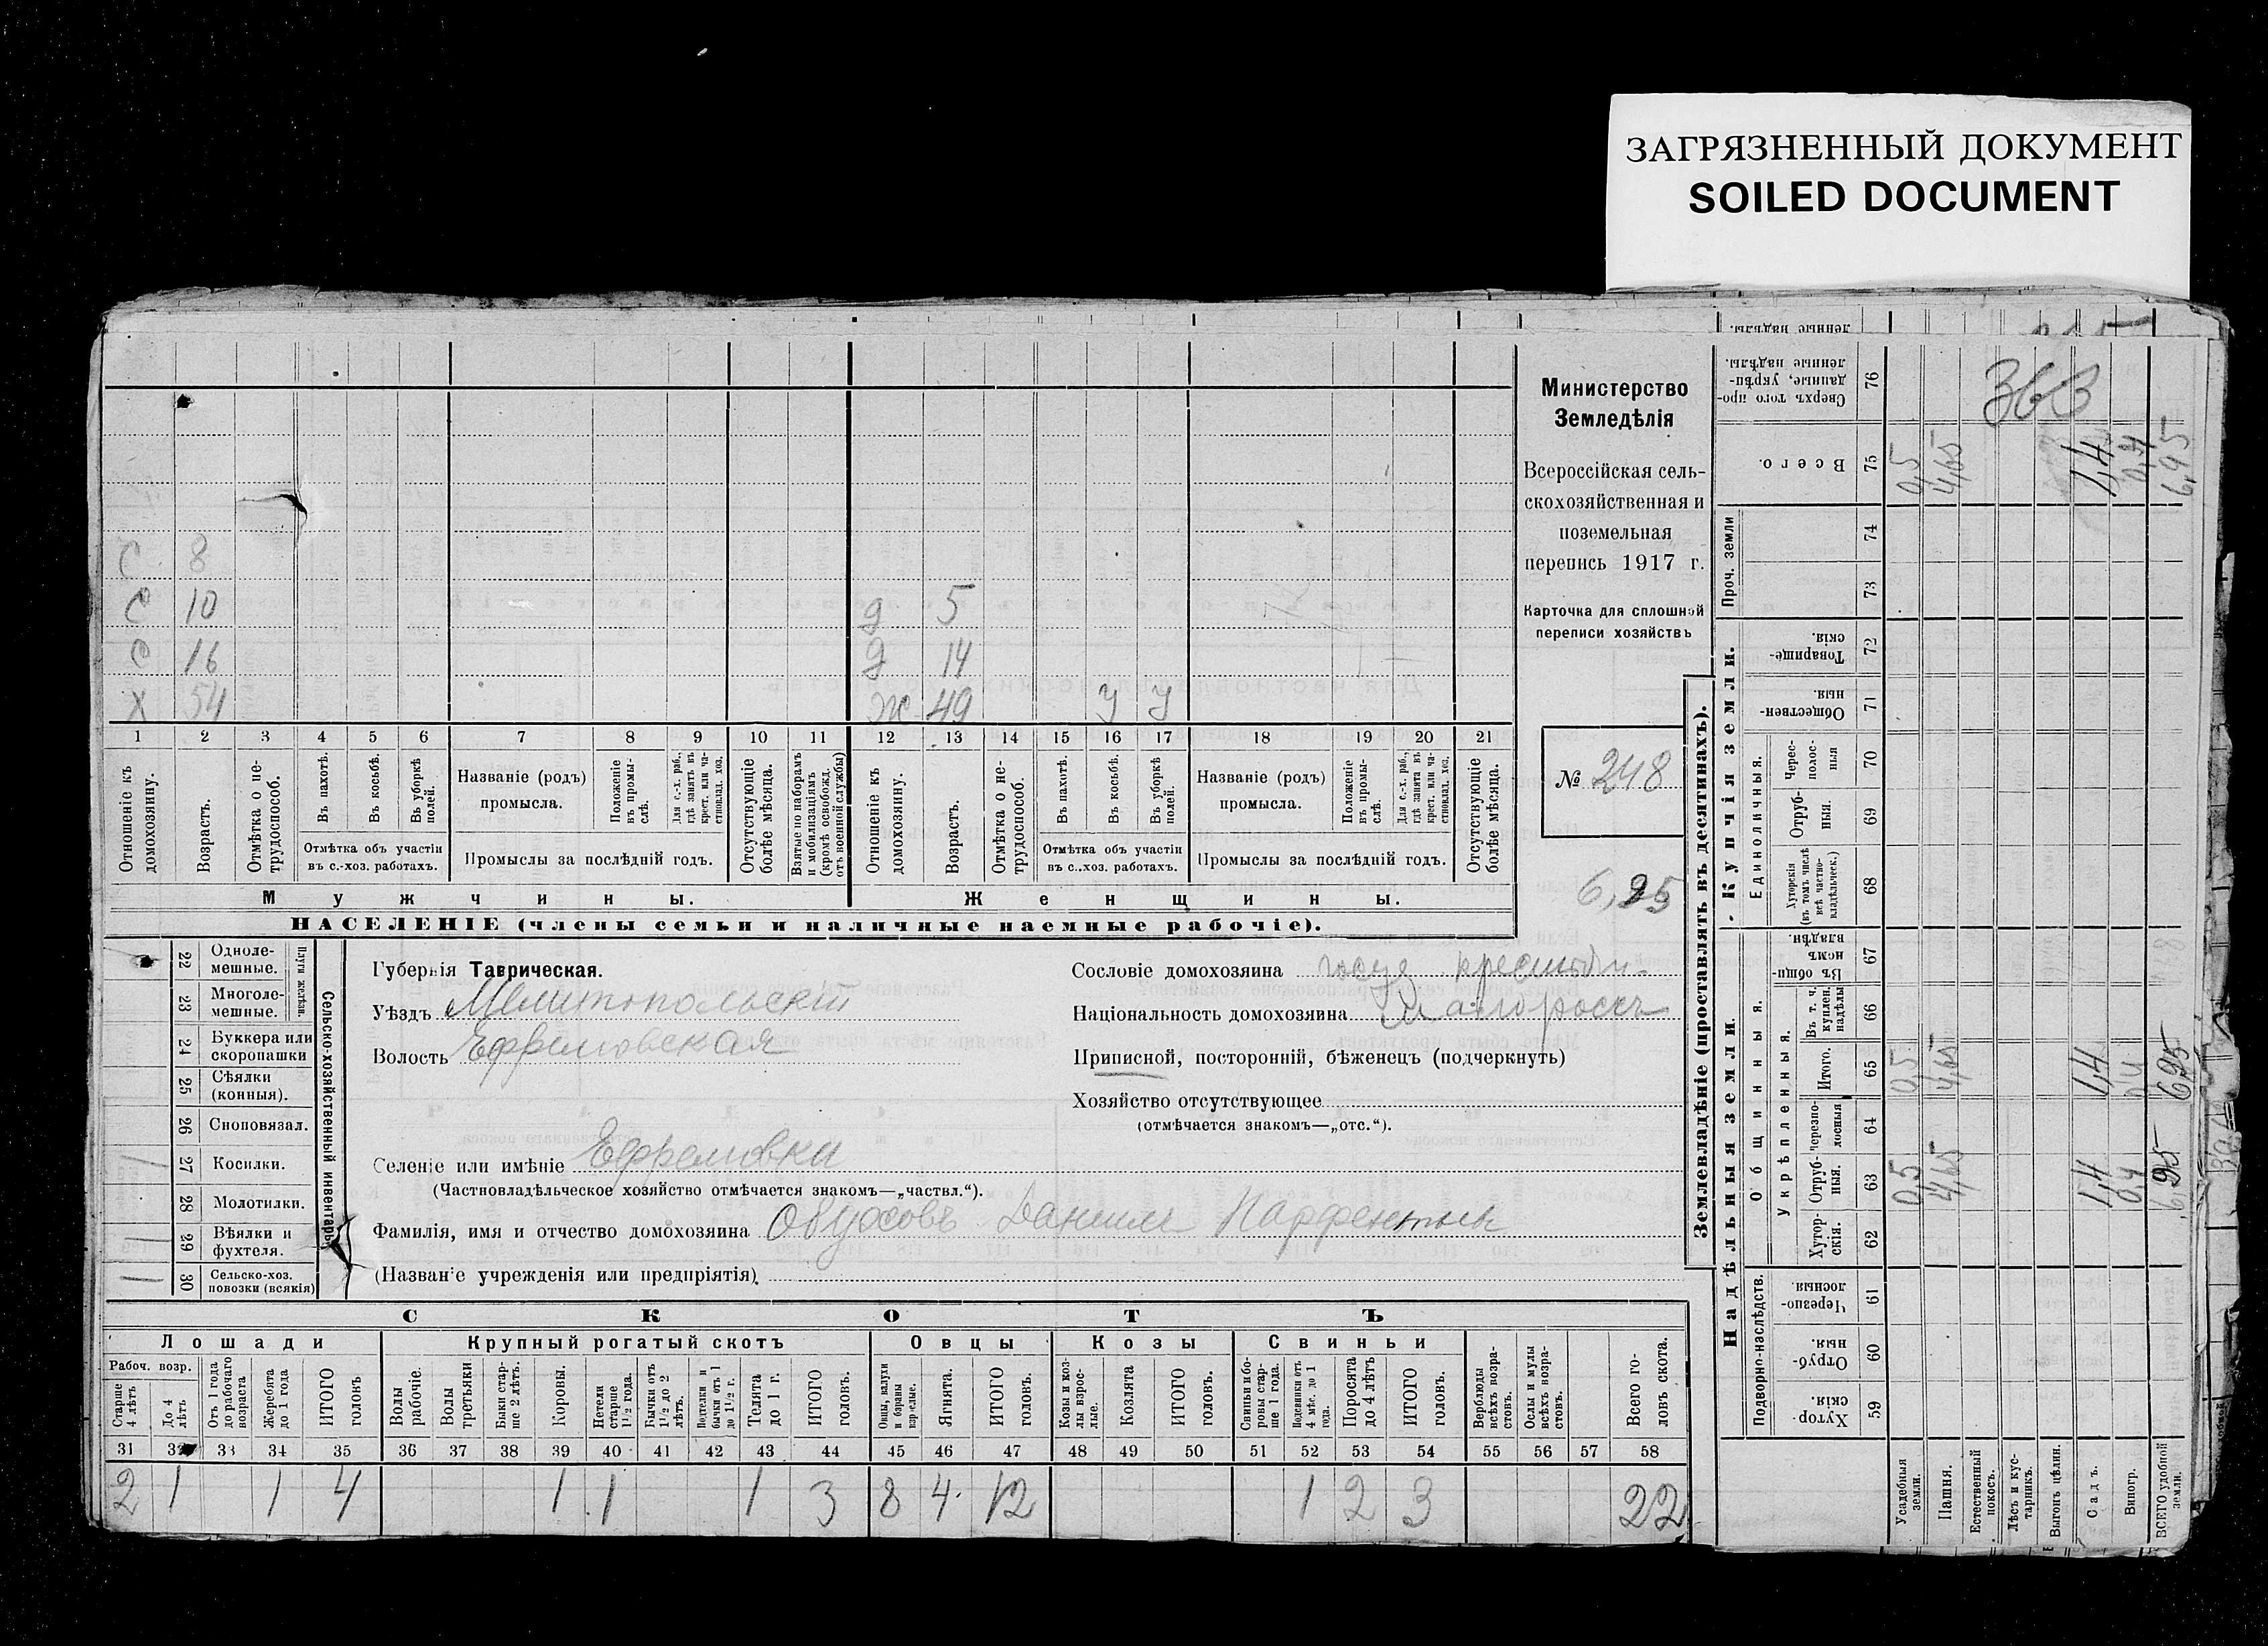 ЗАГРЯЗНЕННЫЙ ДОКУМЕНТ
SOILED DOCUMENT
С 8
С 10
д 5
С 16
д 14
Х 54
Ж 49 у у
1 2 3 4 5 6 7 8 9 10 11 12 13 14 15 16 17 18 19 20 21
Отношеніе къ домохозяину.
Возрастъ.
Отмѣтка о не-трудоспособ.
Въ пахотѣ.
Въ косьбѣ.
Въ уборкѣ полей.
Отмѣтка объ участіи
въ с.-хоз. работахъ.
Названіе (родъ)
промысла.
Положеніе въ промы-слѣ.
Для с.-х. раб., гдѣ занятъ въ крест. или ча-стновлад. хоз.
Промыслы за послѣдній годъ.
Отсутствующіе болѣе мѣсяца.
Взятые по наборамъ и мобилизаціямъ (кромѣ освобожд. отъ военной службы)
Отношеніе къ домохозяину.
Возрастъ.
Отмѣтка о не-трудоспособ.
Въ пахотѣ.
Въ косьбѣ.
Въ уборкѣ полей.
Отмѣтка объ участіи
въ с..хоз. работахъ.
Названіе (родъ)
промысла.
Положеніе въ промы-слѣ.
Для с.-х. раб., гдѣ занята въ крест. или ча-стновлад. хоз.
Промыслы за послѣдній годъ.
Отсутствующіе болѣе мѣсяца.
Мужчины.
Женщины.
НАСЕЛЕНІЕ (члены семьи и наличные наемные рабочіе).
Министерство
Земледѣлія
Всероссійская сель-
скохозяйственная и
поземельная
перепись 1917 г.
Карточка для сплошной
переписи хозяйствъ
№ 248
6,95
Сельско-хозяйственный инвентарь.
Плуги желѣзн.
22 Одноле-мешные.
23 Многоле-мешные.
24 Буккера или скоропашки
25 Сѣялки (конныя).
26 Сноповязал.
1 27 Косилки.
28 Молотилки.
1 29 Вѣялки и фухтеля.
1 30 Сельско-хоз. повозки (всякія)
Губернія Таврическая.
Уѣздъ Мелитопольскій
Волость Ефремовская
Селеніе или имѣніе Ефремовка
(Частновладѣльческое хозяйство отмѣчается знакомъ—„частвл.“).
Фамилія, имя и отчество домохозяина Даниил
(Названіе учрежденія или предпріятія)
Сословіе домохозяина
Національность домохозяина Малороссъ
Приписной, посторонній, бѣженецъ (подчеркнуть)
Хозяйство отсутствующее
(отмѣчается знакомъ—„отс.“).
СКОТЪ
Лошади
Крупный рогатый скотъ
Овцы
Козы
Свиньи
Рабоч. возр.
Старше 4 лѣтъ
До 4 лѣтъ
Отъ 1 года до рабочаго возраста
Жеребята до 1 года
ИТОГО головъ
Волы рабочіе.
Волы третьяки
Быки стар-ше 2 лѣтъ.
Коровы.
Нетели старше 1½ года.
Бычки отъ 1½ до 2 лѣтъ.
Подтелки и бычки отъ 1 до 1½ г.
Телята до 1 г.
ИТОГО головъ.
Овцы, валухи и бараны взрослые.
Ягнята.
ИТОГО головъ.
Козы и коз-лы взрос-лые.
Козлята
ИТОГО головъ.
Свиньи и бо-ровы стар-ше 1 года.
Подсвинки отъ 4 мѣс. до 1 года.
Поросята до 4 лѣтъ
ИТОГО головъ.
Верблюды всѣхъ возра-стовъ.
Ослы и мулы всѣхъ возра-стовъ.
Всего го-ловъ скота.
31 32 33 34 35 36 37 38 39 40 41 42 43 44 45 46 47 48 49 50 51 52 53 54 55 56 57 58
2 1 1 4 1 1 1 3 8 4 12 1 2 3 22
Землевладѣніе (проставлять въ десятинахъ).
Купчія земли.
Надѣльныя земли.
Сверхъ того про-данные, укрѣп-ленные надѣлы. 76
363
Всего. 75 0,5 4,65 1,4 0,4 6,95
Проч. земли
74
73
Товарище-скія. 72
Обществен-ныя. 71
Единоличныя.
Черес-полос-ныя 70
Отруб-ныя. 69
Хуторскія (въ томъ числѣ всѣ частно-владѣльческ.) 68
Общинныя.
Въ общи-номъ владѣн. 67
Укрѣпленныя.
Въ т. ч. куплен. надѣлы 66
Итого. 65 0,5 4,65 1,4 0,4 6,95
Черезпо-лосныя 64
Отруб-ныя. 63 0,5 4,65 1,4 0,4 6,95
Хутор-скія. 62
Подворно-наслѣдств.
Черезпо-лосныя 61
Отруб-ныя. 60
Хутор-скія. 59
Усадебныя земли.
Пашня.
Естественный покосъ.
Лѣсъ и кус-тарникъ.
Выгонъ цѣлин.
Садъ.
Виногр.
ВСЕГО удобной земли.